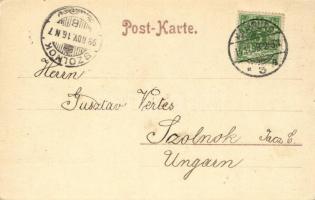 Post-Karte.
SZOLNOK
99 NOV. 16 N 7
Herrn
Gusztav Vértes
Szolnok
Ungarn